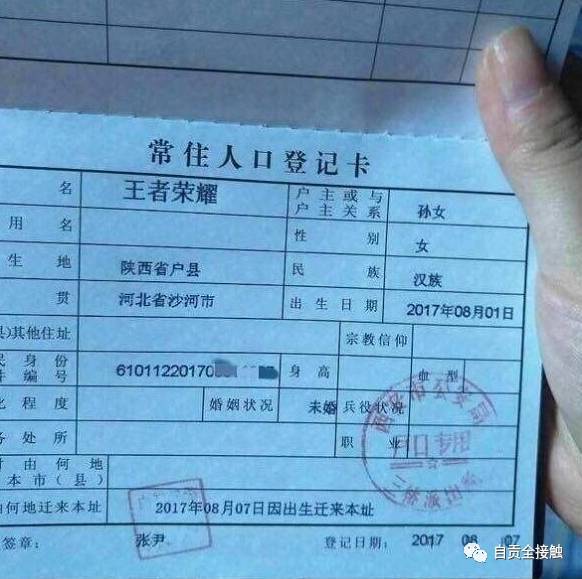 常住人口登记卡
名 王者荣耀 户主或与户主关系 孙女
用名 性别 女
生地 陕西省户县 民族 汉族
贯 河北省沙河市 出生日期 2017年08月01日
)其他住址 宗教信仰
民身份件编号 61011220170 身高 血型
化程度 婚姻状况 未婚 兵役状况
务处所 职业
时由何地本市(县)
由何地迁来本址 2017年08月07日因出生迁来本址
签章: 张尹 登记日期: 2017 08 07
西安市公安局
户口专用
自贡全接触